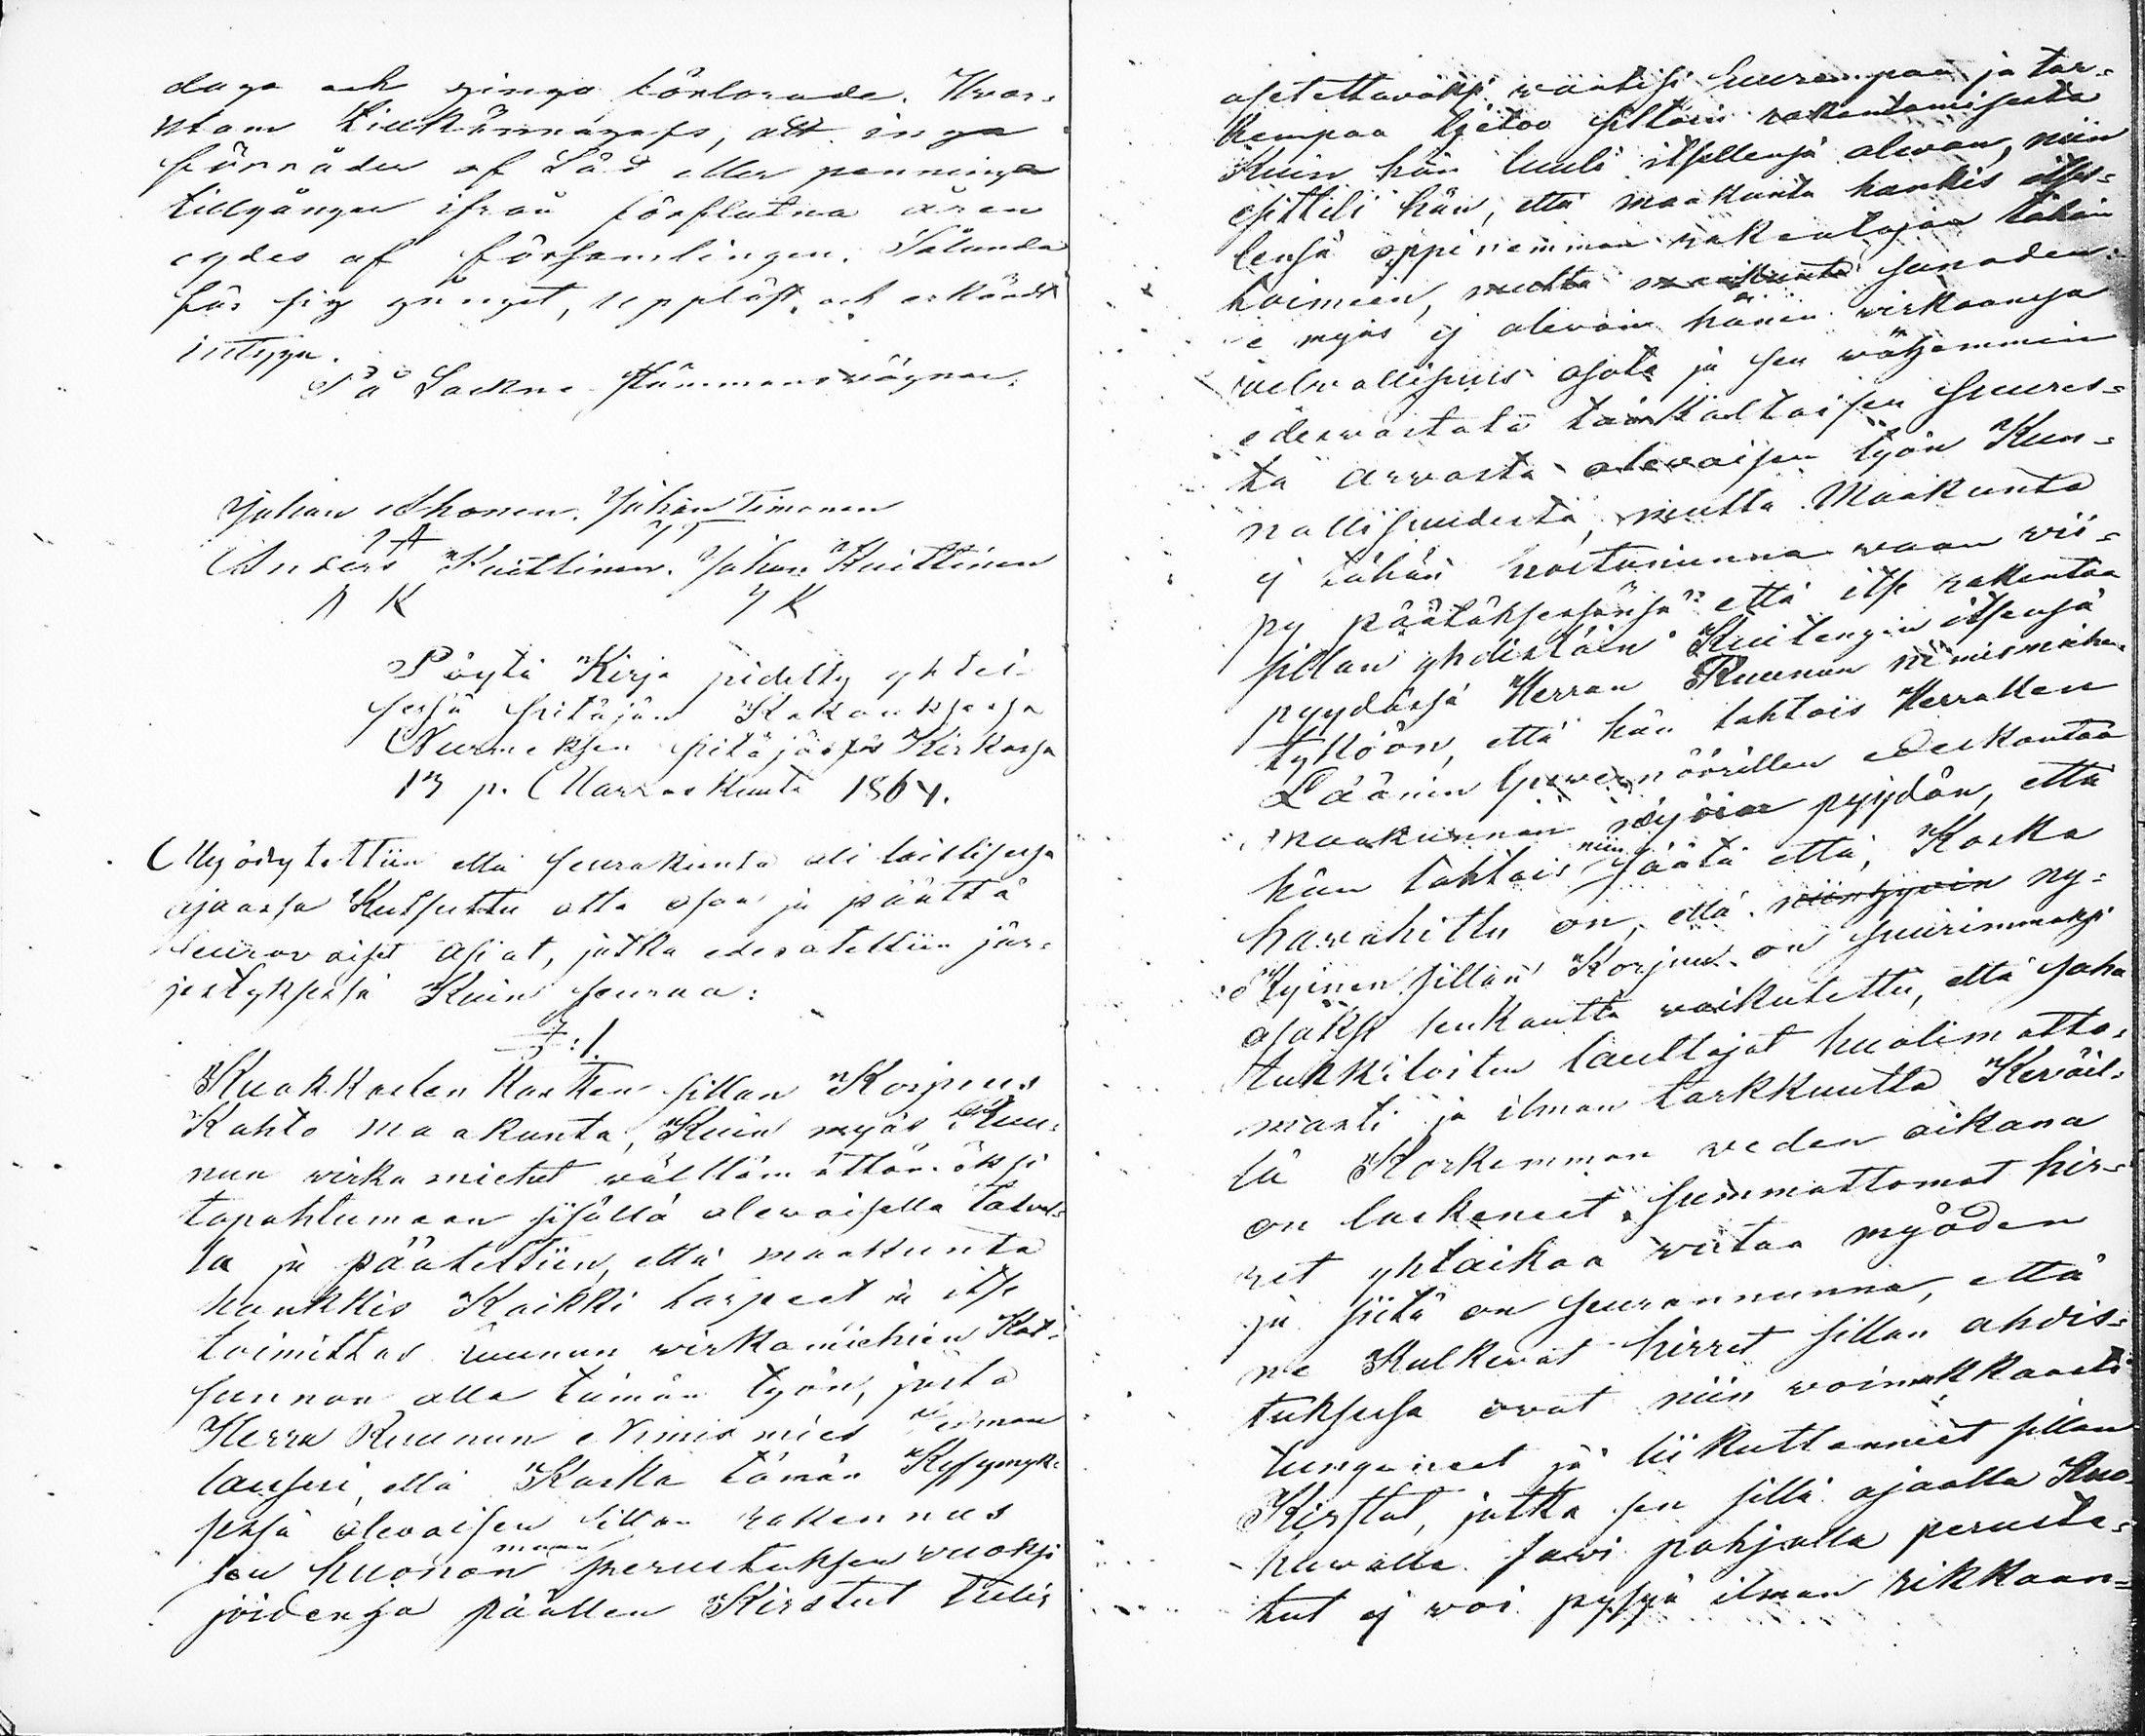 daga och ginga förlorade. Hvar-
utom tillkännagafs, att inga
förråder af Säd eller penninge
tillgångar ifrån förflutna åren
egdes af församlingen. Sålunda
för sig gånget, uppläst och erkändt
intyga.
På Sockne Stämmans wägnar.
Johan Ihonen. Johan Timonen
Anders Kuittinen. Johan Kuittinen
A K J K
Pöytä Kirja pidetty yhtei-
sessä pitäjän Kokouksessa
Nurmeksen pitäjässä Kirkossa
13 p. Marraskuuta 1864.
Myödytettiin että seurakunta oli laillisessa
ajaassa Kutsuttu otta osaa ja päättä
seuravaiset asiat, jotka edesotettiin jär-
jestyksessä Kuin seuraa:
§ :1.
Kuokkasten Kosken sillan Korjuus
Kahto maakunta, Kuin myös Ruu-
nun wirka miehet wälttämättömäksi
tapahtumaan sisällä olewaisella talwel-
la ja päätettiin, että maakunta
hankkis Kaikki tarpeet ja itse
toimittas ruunun wirkamiehien Kat-
sannon alla tämän työn, josta
Herra Ruunun Nimismies
lausui, että Koska tämän Kysymyk-
sessä olevaisen sillan rakennus
sen huonon maan perustuksen vuoksi
joidenga päällen Kirstut tulis
asetettawaksi waatisi suurempaa ja tar-
kempaa tietoo siltain rakentamisesta
Kuin hän luuli itsellensä olevan, niin
esitteli hän, että maakunta hankis itsel-
lensä oppineimman rakentajan tähän
toimeen, mutta maakunta sanoden
e myös ej olevain hänen wirkaansa
velwollisuus asota ja sen wähemmin
edeswastata tämkaltaisen suures-
ta arwosta olewaisen työn Kun-
nollisuudesta, mutta Maakunta
ej tähän suostununna waan wii-
py päätöksessänsä että itse rakentaa
sillan yhdistäin Kuitengin itsensä
pyydässä Herran Ruunun nimismiehen
tyköön, että hän tahtois Herrallen
Läänin Guwernöörillen edeskantaa
maakunnan nöyrän pyydön, että
hän tahtois niin säätä että, Koska
hawahittu on, että niinhyvin ny-
kyinen sillan Korjuu on suurimmaksi
osaksi senkautta waikutettu, että saha
tukkiloiten lauttajat huolimatto-
masti ja ilman tarkkuutta Kewäil-
lä Korkemman veden aikana
on laskeneet summattomat hir-
ret yhtaikaa virtaa myöden
ja siitä on seurannunna, että
ne Kulkevat hirret sillan ahdis-
tuksessa ovat niin woimakkaasti
tungeneet ja liikuttanneet sillan
Kirstut, jotka sen sillä ajaalla Kuo-
huwalla sawi pohjalla peruste-
tut ej woi pysyä ilman rikkaan-